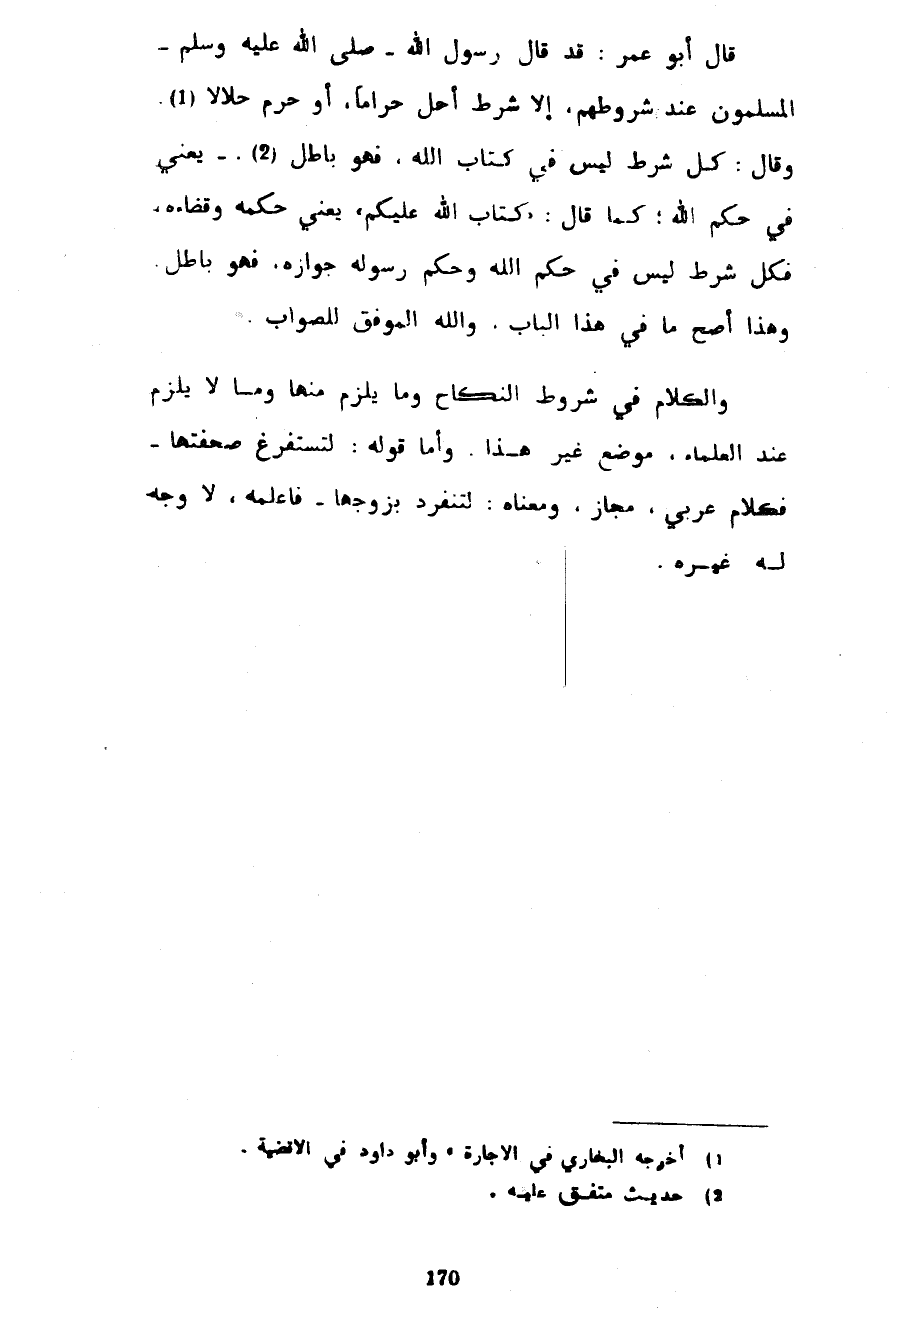 قال أبو عمر : قد قال رسول الله ـ صلى الله عليه وسلم ـ
المسلمون عند شروطهم، إلا شرط أحل حراماً، أو حرم حلالا (1) .
وقال : كـل شرط ليس في كـتاب الله ، فهو باطل (2) . ـ يعني
في حكم الله ؛ كـما قال : «كـتاب الله عليكم» يعني حكمه وقضاءه،
فكل شرط ليس في حكم الله وحكم رسوله جوازه، فهو باطل .
وهذا أصح ما في هذا الباب ، والله الموفق للصواب .
والكلام في شروط النـكاح وما يلزم منها ومـا لا يلزم
عند العلماء ، موضع غير هـذا . وأما قوله : لتستفرغ صحفتها ـ
فكلام عربي ، مجاز ، ومعناه : لتنفرد بزوجها ـ فاعلمه ، لا وجه
لـه غيـره .
1) أخرجه البخاري في الاجارة ، وأبو داود في الاقضية .
2) حديـث متفـق عليـه .
170